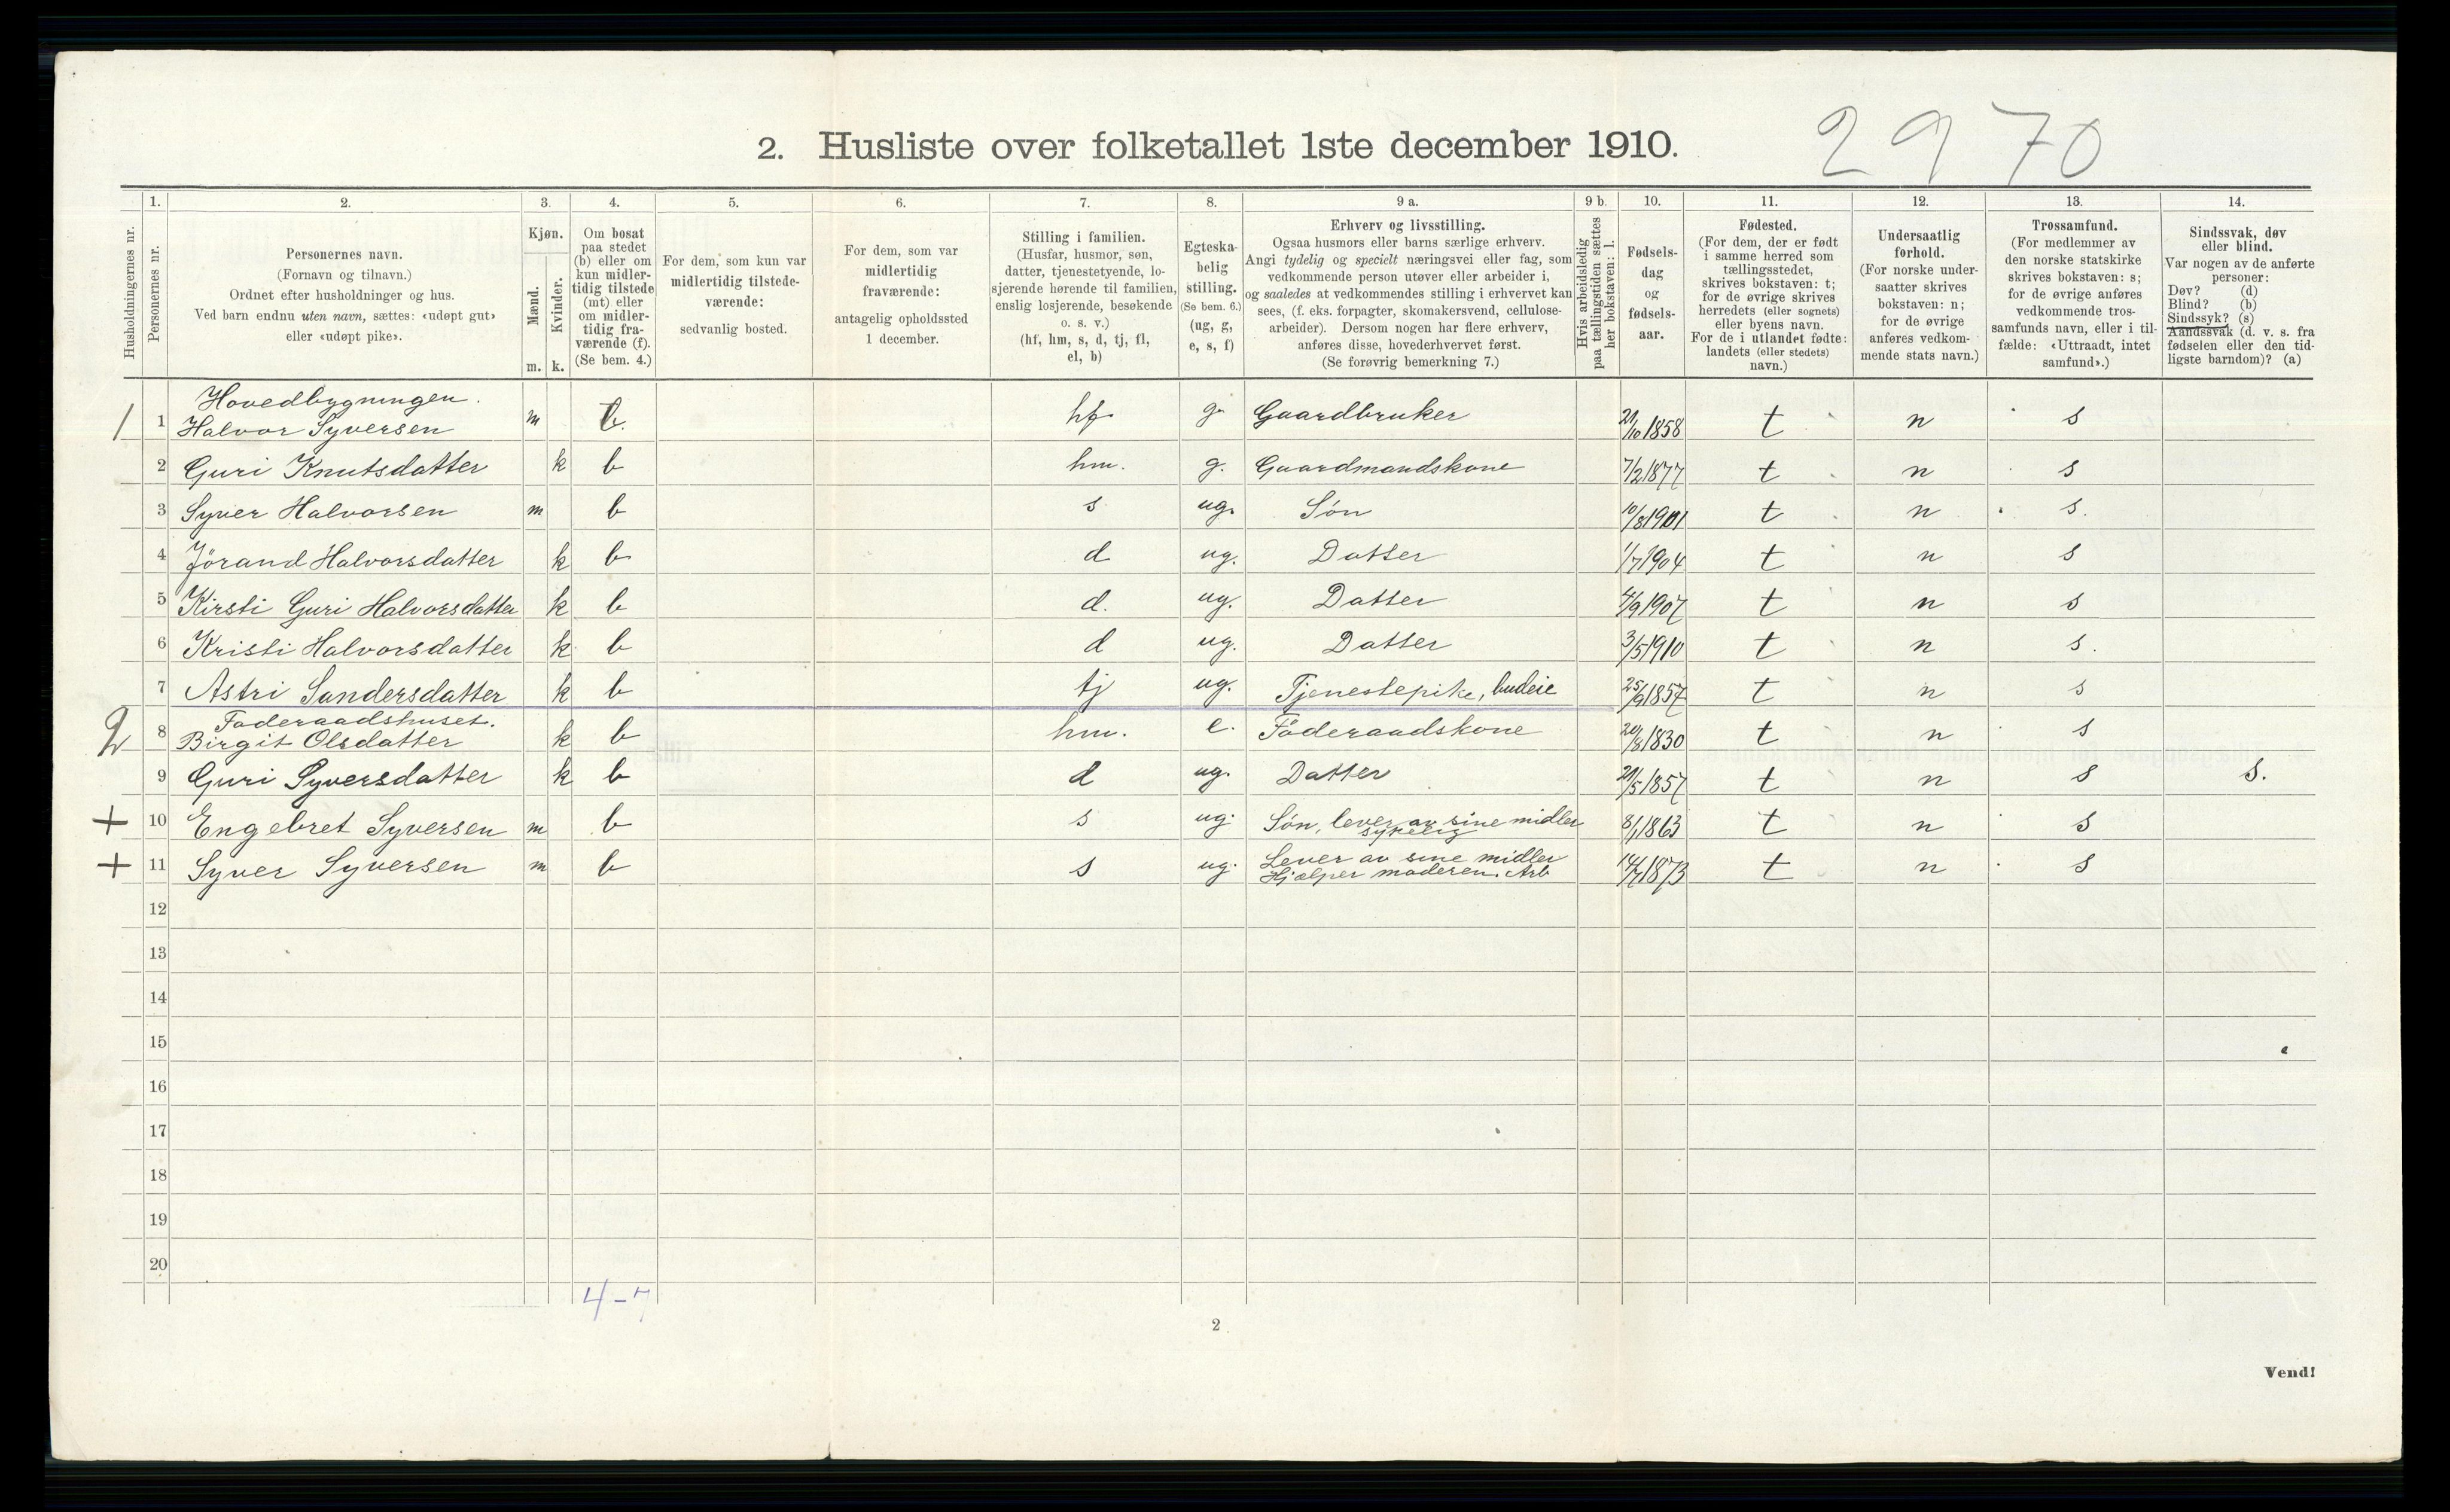 2. Husliste over folketallet 1ste december 1910.
2970
Husholdningernes nr.
1.
Personernes nr.
2.
Personernes navn.
(Fornavn og tilnavn.)
Ordnet efter husholdninger og hus.
Ved barn endnu uten navn, sættes: «udøpt gut»
eller «udøpt pike».
3.
Kjøn.
Mænd.
Kvinder.
m. k.
4.
Om bosat
paa stedet
(b) eller om
kun midler-
tidig tilstede
(mt) eller
om midler-
tidig fra-
værende (f).
(Se bem. 4.)
5.
For dem, som kun var
midlertidig tilstede-
værende:
sedvanlig bosted.
6.
For dem, som var
midlertidig
fraværende:
antagelig opholdssted
1 december.
7.
Stilling i familien.
(Husfar, husmor, søn,
datter, tjenestetyende, lo-
sjerende hørende til familien,
enslig losjerende, besøkende
o. s. v.)
(hf, hm, s, d, tj, fl,
el, b)
8.
Egteska-
belig
stilling.
(Se bem. 6.)
(ug, g,
e, s, f)
9 a.
Erhverv og livsstilling.
Ogsaa husmors eller barns særlige erhverv.
Angi tydelig og specielt næringsvei eller fag, som
vedkommende person utøver eller arbeider i,
og saaledes at vedkommendes stilling i erhvervet kan
sees, (f. eks. forpagter, skomakersvend, cellulose-
arbeider). Dersom nogen har flere erhverv,
anføres disse, hovederhvervet først.
(Se forøvrig bemerkning 7.)
9 b.
Hvis arbeidsledig
paa tællingstiden sættes
her bokstaven: l.
10.
Fødsels-
dag
og
fødsels-
aar.
11.
Fødested.
(For dem, der er født
i samme herred som
tællingsstedet,
skrives bokstaven: t;
for de øvrige skrives
herredets (eller sognets)
eller byens navn.
For de i utlandet fødte:
landets (eller stedets)
navn.)
12.
Undersaatlig
forhold.
(For norske under-
saatter skrives
bokstaven: n;
for de øvrige
anføres vedkom-
mende stats navn.)
13.
Trossamfund.
(For medlemmer av
den norske statskirke
skrives bokstaven: s;
for de øvrige anføres
vedkommende tros-
samfunds navn, eller i til-
fælde: «Uttraadt, intet
samfund».)
14.
Sindssvak, døv
eller blind.
Var nogen av de anførte
personer:
Døv? (d)
Blind? (b)
Sindssyk? (s)
Aandssvak (d. v. s. fra
fødselen eller den tid-
ligste barndom)? (a)
Hovedbygningen.
1 1 Halvor Syversen m b. hf. g. Gaardbruker 21/10 1858 t n s
2 Guri Knutsdatter k b hm. g. Gaardmandskone 7/2 1877 t n s
3 Syver Halvorsen m b s ug. Søn 10/8 1901 t n s.
4 Jørand Halvorsdatter k b d ug. Datter 1/7 1904 t n s
5 Kirsti Guri Halvorsdatter k b d. ug. Datter 4/9 1907 t n s
6 Kristi Halvorsdatter k b d ug. Datter 3/5 1910 t n s.
7 Astri Sandersdatter k b tj ug. Tjenestepike, budeie 25/9 1857 t n s
Føderaadshuset.
2 8 Birgit Olsdatter k b hm. e. Føderaadskone 20/8 1830 t n s
9 Guri Syversdatter k b d ug. Datter 21/5 1857 t n s s.
+ 10 Engebret Syversen m b s ug. Søn, lever av sine midler 8/1 1863 t n s
sykelig
+ 11 Syver Syversen m b s ug. Lever av sine midler 14/7 1873 t n s
Hjælper moderen. Arb
12
13
14
15
16
17
18
19
20
4-7
2
Vend!